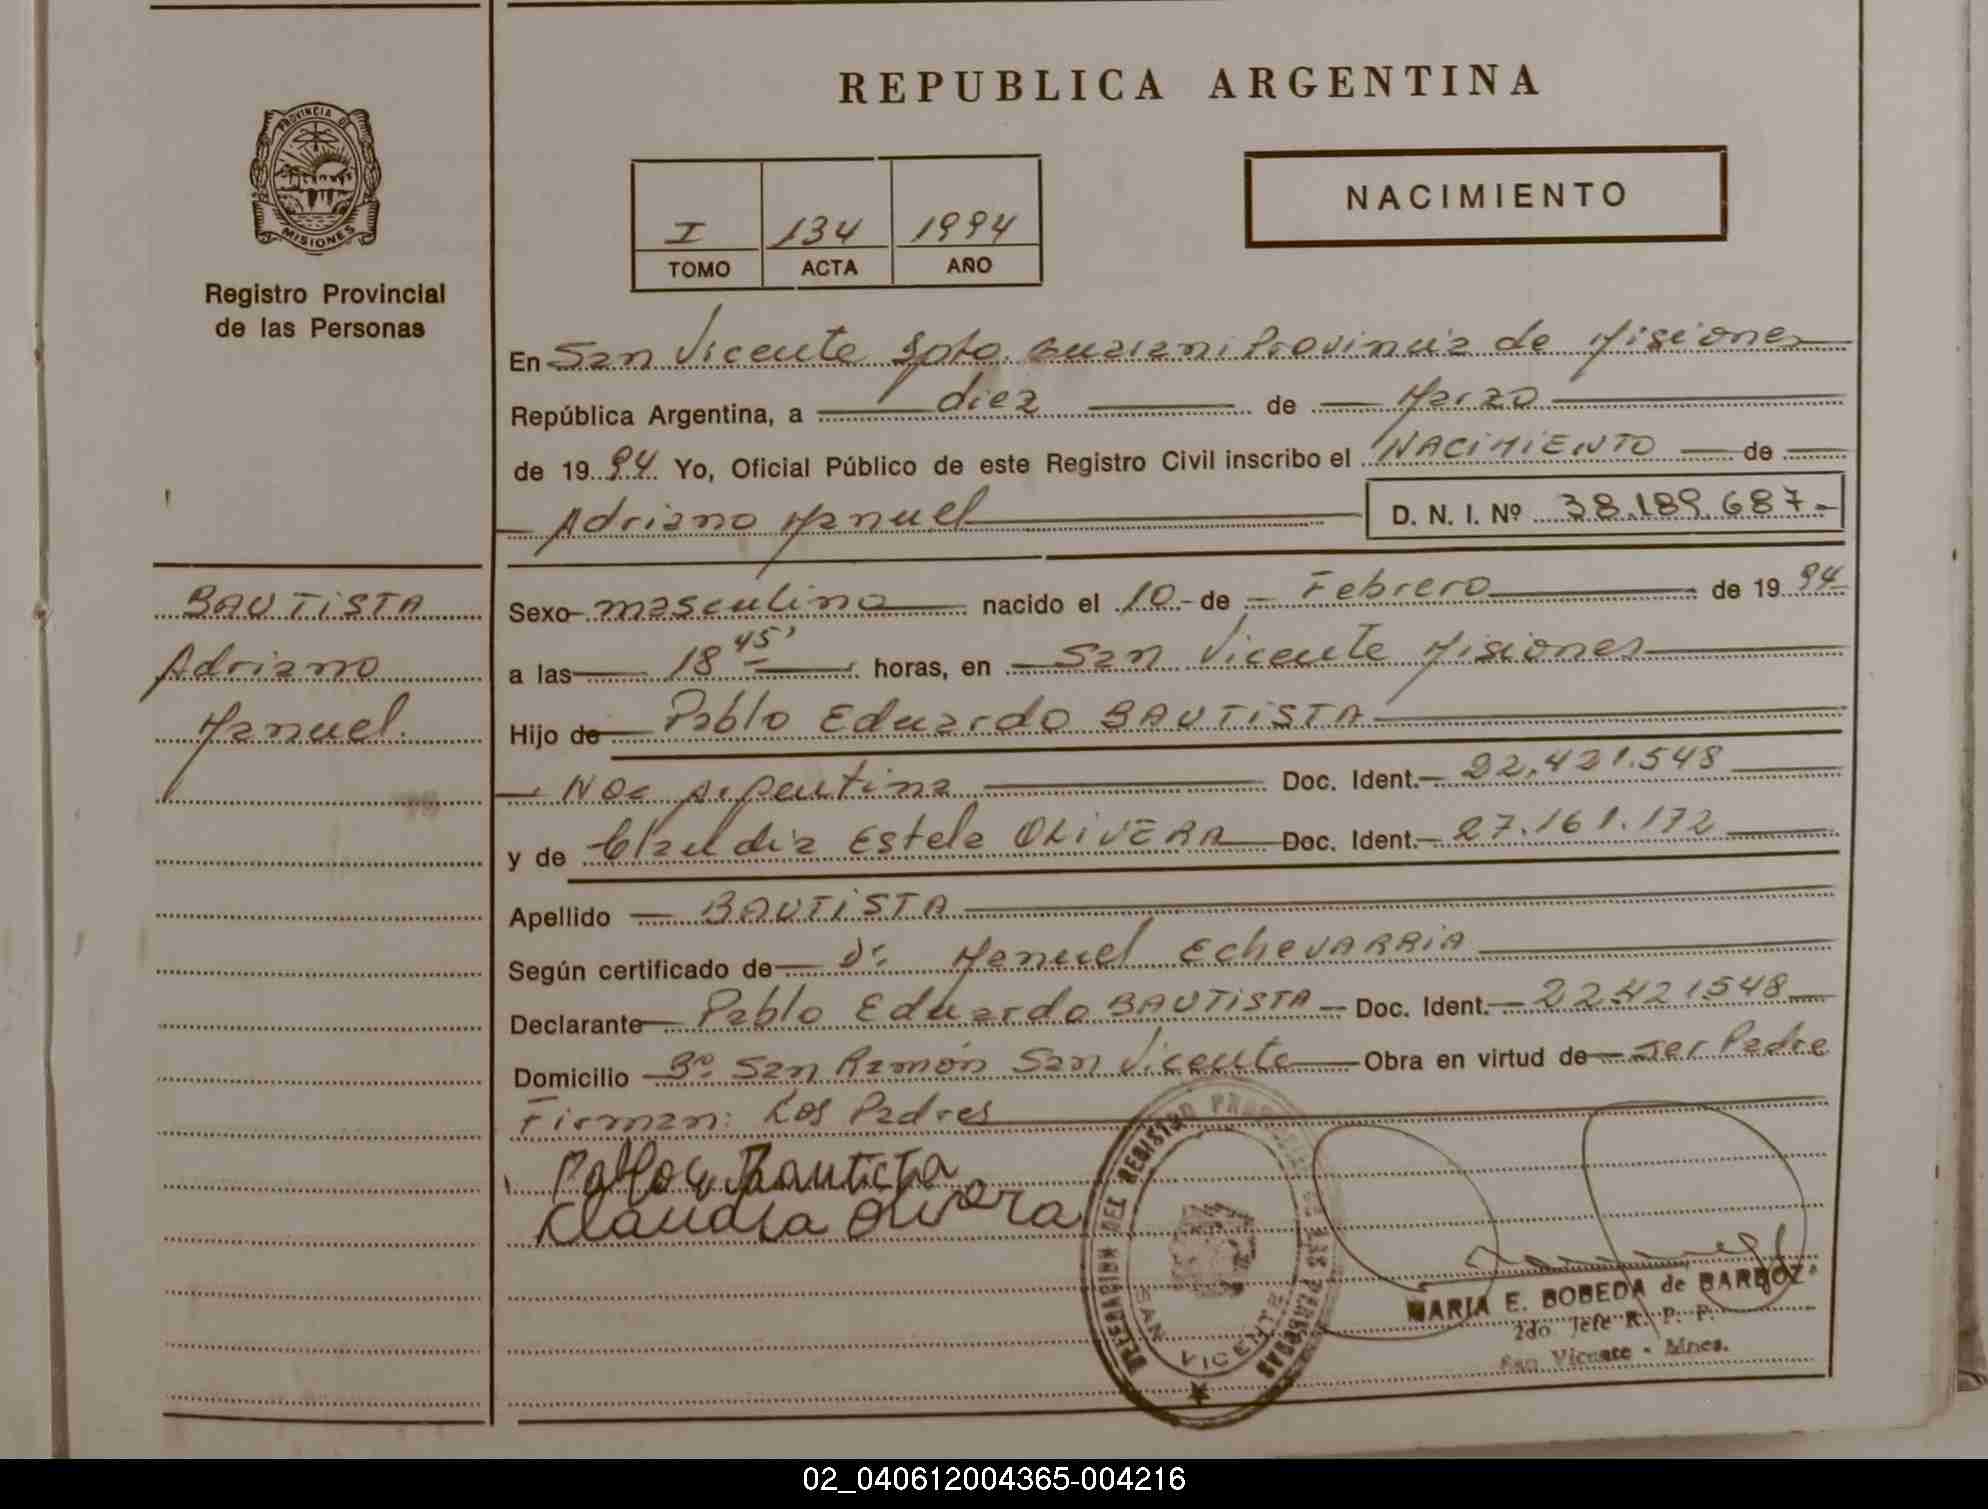 REPUBLICA ARGENTINA
PROVINCIA DE
MISIONES
Registro Provincial
de las Personas
NACIMIENTO
I 134 1994
TOMO ACTA AÑO
En San Vicente Dpto. Guarani Provincia de Misiones
República Argentina, a diez de Marzo
de 1994 Yo, Oficial Público de este Registro Civil inscribo el NACIMIENTO de
Adriano Manuel D. N. I. Nº 38.189.687.-
BAUTISTA
Adriano
Manuel.
Sexo masculino nacido el 10 - de Febrero de 1994
a las 18 45' horas, en San Vicente Misiones
Hijo de Pablo Eduardo BAUTISTA
Nac Argentina Doc. Ident. 22.421.548
y de Claudia Estela OLIVERA Doc. Ident. 27.161.172
Apellido BAUTISTA
Según certificado de Dr. Manuel EcheVARRIA
Declarante Pablo Eduardo BAUTISTA Doc. Ident. 22421548
Domicilio Bº. San Ramón San Vicente Obra en virtud de ser Padre
Firman: Los Padres
Pablo E Bautista
Claudia Olivera
DELEGACION DEL REGISTRO PROVINCIAL DE LAS PERSONAS
SAN VICENTE
MARIA E. BOBEDA de BARBOZA
2do Jefe R. P. P.
San Vicente - Mnes.
02_040612004365-004216